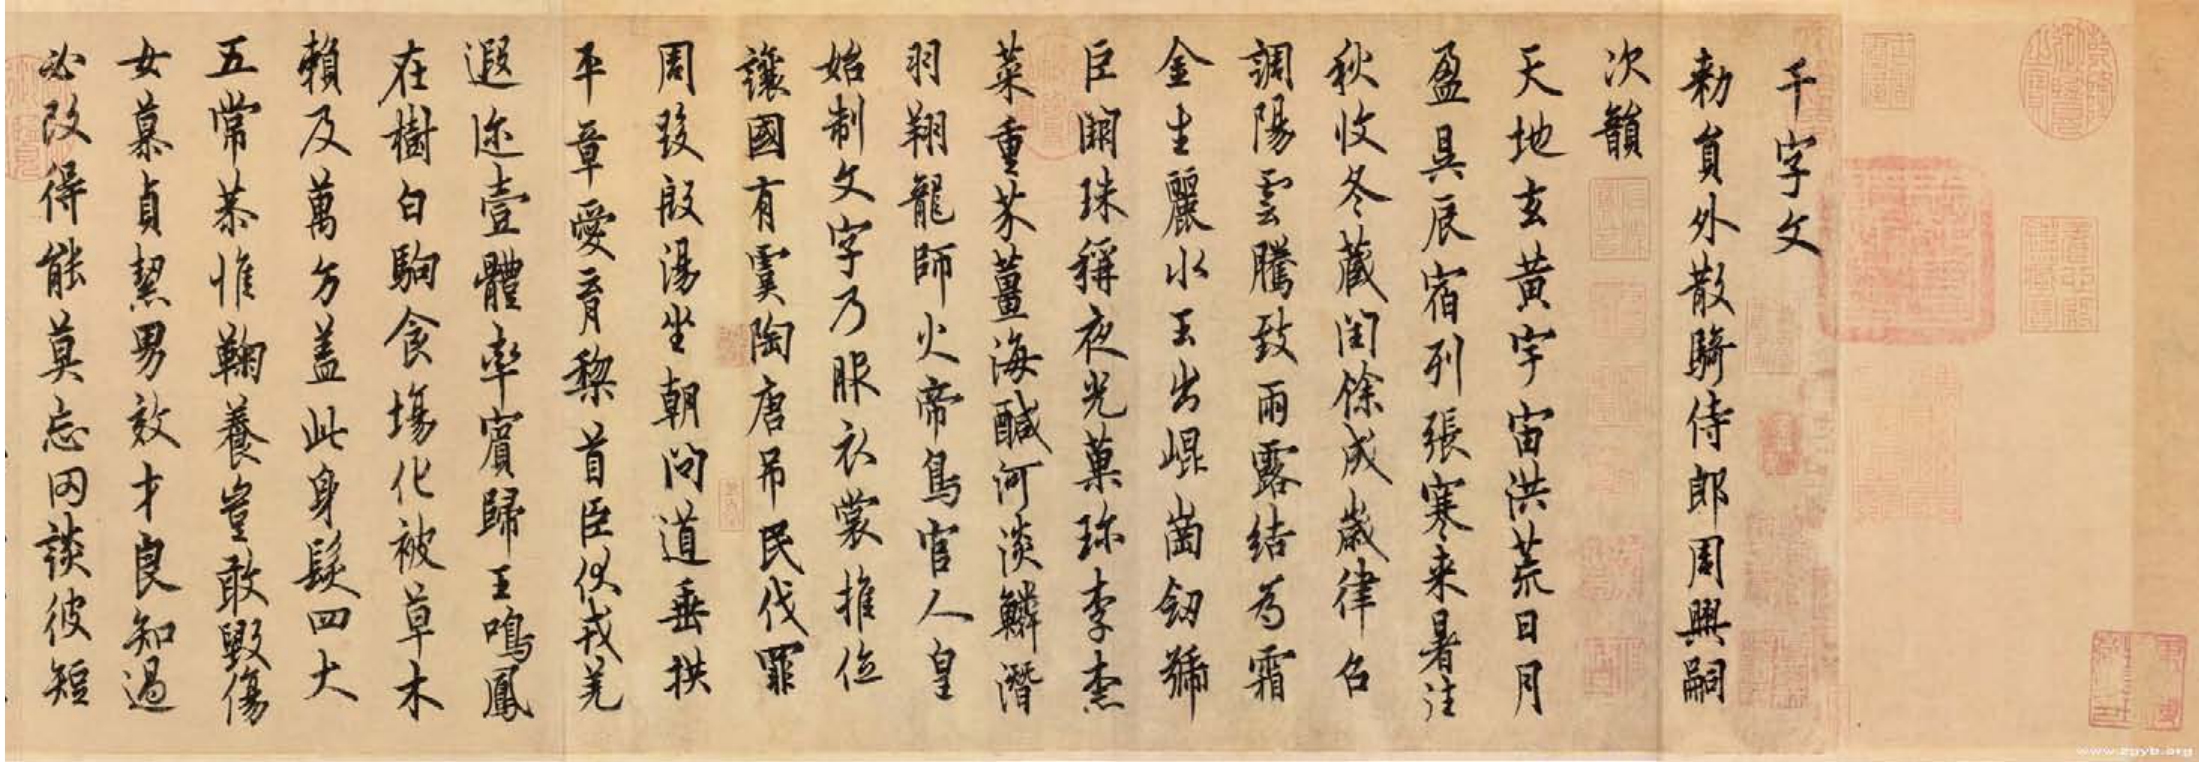 千字文
勑員外散騎侍郎周興嗣
次韻
天地玄黃宇宙洪荒日月
盈昃辰宿列張寒来暑往
秋收冬藏閏餘成歲律召
調陽雲騰致雨露結為霜
金生麗水玉出崐崗劒號
巨闕珠稱夜光菓珎李柰
菜重芥薑海醎河淡鱗潛
羽翔龍師火帝鳥官人皇
始制文字乃服衣裳推位
讓國有虞陶唐弔民伐罪
周發殷湯坐朝問道垂拱
平章愛育黎首臣伏戎羌
遐迩壹體率賓歸王鳴鳳
在樹白駒食場化被草木
賴及萬方盖此身髮四大
五常恭惟鞠養豈敢毀傷
女慕貞絜男效才良知過
必改得能莫忘罔談彼短
www.zgyb.org